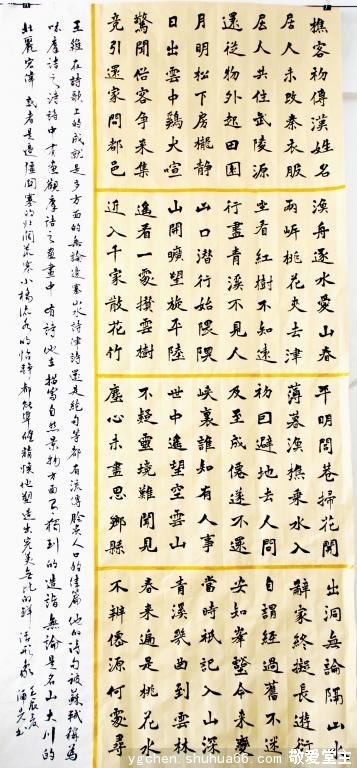 樵客初傳漢姓名
居人未改秦衣服
居人共住武陵源
還從物外起田園
月明松下房櫳靜
日出雲中鷄犬喧
驚聞俗客爭来集
竞引還家問都邑
漁舟逐水愛山春
兩岸桃花夾去津
坐看紅樹不知遠
行盡青溪不見人
山口潜行始隈隩
山開曠望旋平陸
遙看一處攢雲樹
近入千家散花竹
平明閭巷掃花開
薄暮漁樵乘水入
初因避地去人間
及至成僊遂不還
峽裏誰知有人事
世中遙望空雲山
不疑靈境難聞見
塵心未盡思鄉縣
出洞無論隔山水
辭家終擬長遊衍
自謂經過舊不迷
安知峯壑今来變
當時祇記入山深
青溪幾曲到雲林
春来遍是桃花水
不辨僊源何處尋
王維在詩歌上的成就是多方面的無論邊塞山水詩律詩還是絶句等都有流傳膾炙人口的佳篇他的詩句被蘇軾稱為
味摩詰之詩詩中有畫觀摩詰之畫畫中有詩他在描寫自然景物方面有獨到的造詣無論是名山大川的
壯麗宏偉或者是邊疆關塞的壯闊荒寒小橋流水的恬静都能準確精煉地塑造出完美無比的鮮活形象
壬辰夏
ygchen.shuhua66.com 敬爱堂主